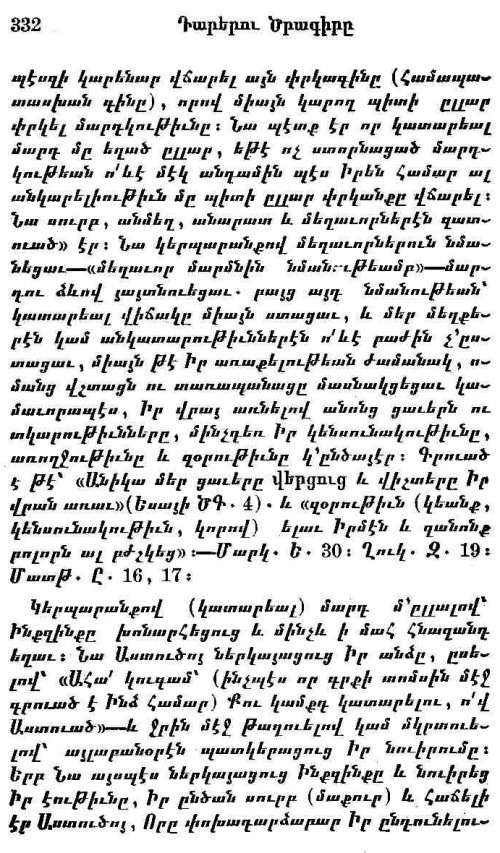 332 Դարերու Ծրագիրը
պէսզի կարենար վճարել այն փրկագինը (համապա-
տասխան գինը), որով միայն կարող պիտի ըլլար
փրկել մարդկութիւնը։ Նա պէտք էր որ կատարեալ
մարդ մը եղած ըլլար, եթէ ոչ ստորնացած մարդ-
կութեան ո՛ևէ մէկ անդամին պէս Իրեն համար ալ
անկարելիութիւն մը պիտի ըլլար փրկանքը վճարել։
Նա սուրբ, անմեղ, անարատ և մեղաւորներէն զատ-
ուած» էր։ Նա կերպարանքով մեղաւորներուն նմա-
նեցաւ—«մեղաւոր մարմնին նմանութեամբ»—մար-
դու ձևով յայտնուեցաւ. բայց այդ նմանութեան՝
կատարեալ վիճակը միայն ստացաւ, և մեր մեղքե-
րէն կամ անկատարութիւններէն ո՛ևէ բաժին չ՚ըս-
տացաւ, միայն թէ Իր առաքելութեան ժամանակ, ո-
մանց վշտացն ու տառապանացը մասնակցեցաւ կա-
մաւորապէս, Իր վրայ առնելով անոնց ցաւերն ու
տկարութիւնները, մինչդեռ Իր կենսունակութիւնը,
առողջութիւնը և զօրութիւնը կ՚ընծայէր։ Գրուած
է թէ՝ «Անիկա մեր ցաւերը վերցուց և վիշտերը Իր
վրան առաւ»(Եսայի ԾԳ. 4). և «զօրութիւն (կեանք,
կենսունակութիւն, կորով) ելաւ Իրմէն և զանոնք
բոլորն ալ բժշկեց»։—Մարկ. Ե. 30։ Ղուկ. Զ. 19։
Մատթ. Ը. 16, 17։
Կերպարանքով (կատարեալ) մարդ մ՚ըլլալով՝
Ինքզինքը խոնարհեցուց և մինչև ի մահ հնազանդ
եղաւ։ Նա Աստուծոյ ներկայացուց Իր անձը, ըսե-
լով՝ «Ահա՛ կուգամ՝ (ինչպէս որ գրքի տոմսին մէջ
գրուած է Ինձ համար) Քու կամքդ կատարելու, ո՛վ
Աստուած»—և ջրին մէջ թաղուելով կամ մկրտուե-
լով՝ այլաբանօրէն պատկերացուց Իր նուիրումը։
Երբ Նա այսպէս ներկայացուց Ինքզինքը և նուիրեց
Իր էութիւնը, Իր ընծան սուրբ (մաքուր) և հաճելի
էր Աստուծոյ, Որը փոխադարձաբար Իր ընդունելու-